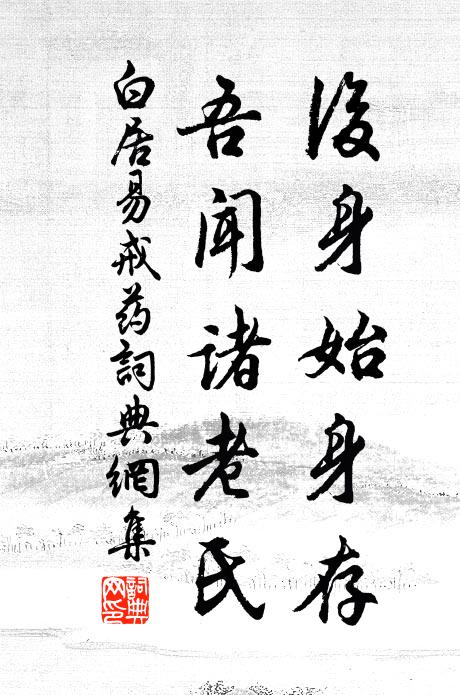 後身始身存
吾聞諸老氏
白居易戒药詞典網集
詞典網印